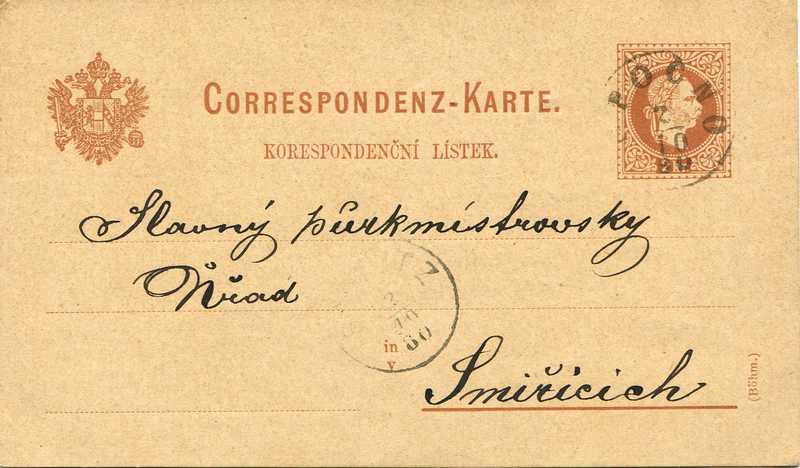 CORRESPONDENZ-KARTE.
KORESPONDENČNÍ LÍSTEK.
POČNO
2
10
80
Slavný půrkmistrovsky
Ůřad
2
10
80
in
v
Smiřicích
(Böhm.)